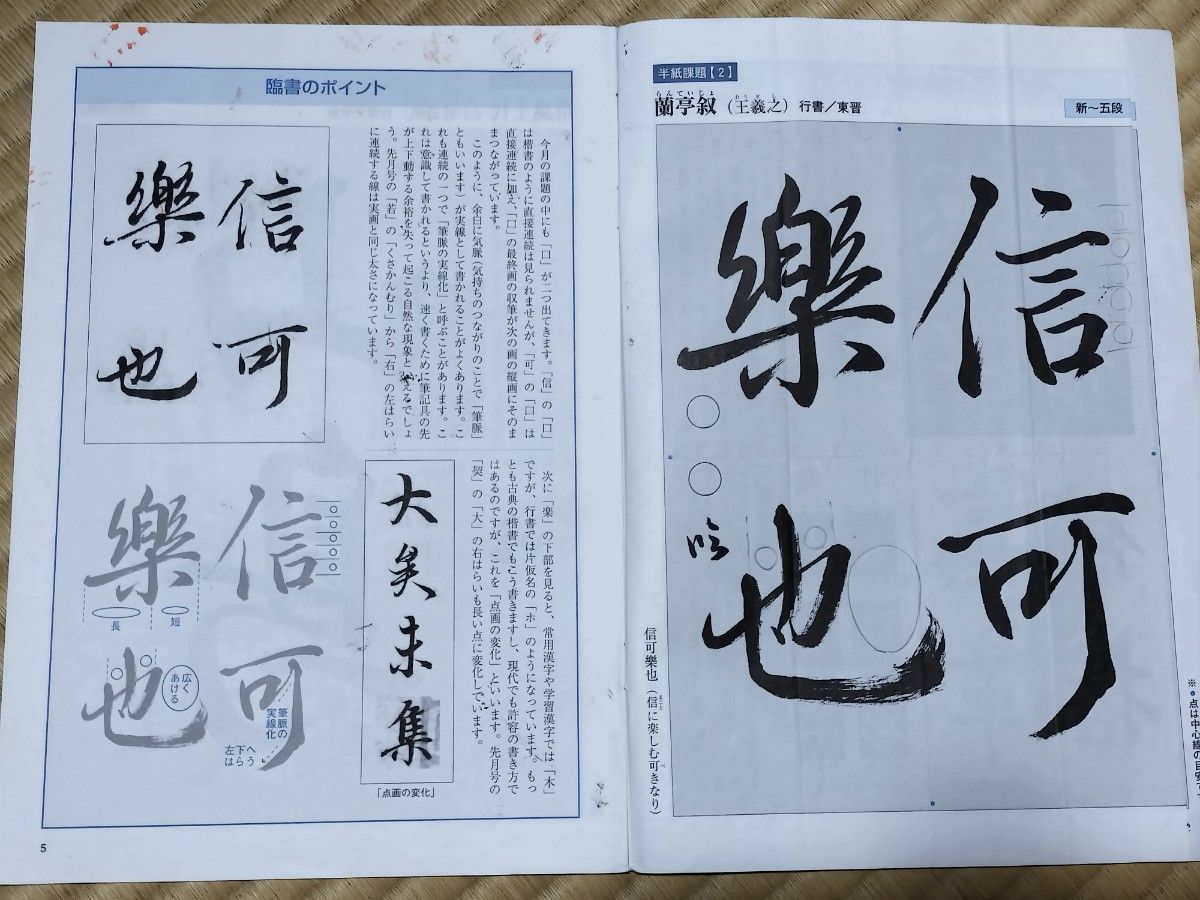 半紙課題【2】
らんていじょ
おうぎし
蘭亭叙（王羲之）行書／東晋
新〜五段
信可
樂也
吟
信可樂也（信に楽しむ可きなり）
まこと
べ
臨書のポイント
今月の課題の中にも「口」が二つ出てきます。「信」の「口」
は楷書のように直接連続は見られませんが、「可」の「口」は
直接連続に加え、「口」の最終画の収筆が次の画の縦画にそのま
まつながっています。
このように、余白に気脈（気持ちのつながりのことで「筆脈」
ともいいます）が実線として書かれることがよくあります。こ
れも連続の一つで「筆脈の実線化」と呼ぶことがあります。こ
れは意識して書かれるというより、速く書くために筆記具の先
が上下動する余裕を失って起こる自然な現象といえるでしょ
う。先月号の「若」の「くさかんむり」から「右」の左はらい
に連続する線は実画と同じ太さになっています。
信可
樂也
次に「楽」の下部を見ると、常用漢字や学習漢字では「木」
ですが、行書では片仮名の「ホ」のようになっています。もっ
とも古典の楷書でもこう書きますし、現代でも許容の書き方で
はあるのですが、これを「点画の変化」といいます。先月号の
「契」の「大」の右はらいも長い点に変化しています。
大矣未集
「点画の変化」
信可
樂也
長
短
広く
あける
筆脈の
実線化
左下へ
はらう
5